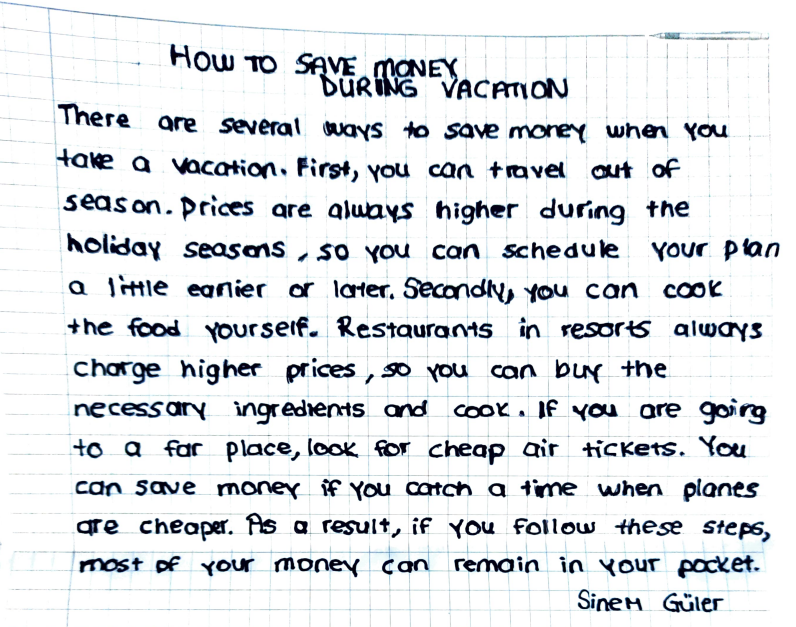 HOW TO SAVE MONEY
DURING VACATION
There are several ways to save money when you
take a vacation. First, you can travel out of
season. Prices are always higher during the
holiday seasons, so you can schedule your plan
a little earlier or later. Secondly, you can cook
the food yourself. Restaurants in resorts always
charge higher prices, so you can buy the
necessary ingredients and cook. If you are going
to a far place, look for cheap air tickets. You
can save money if you catch a time when planes
are cheaper. As a result, if you follow these steps,
most of your money can remain in your pocket.
Sinem Güler